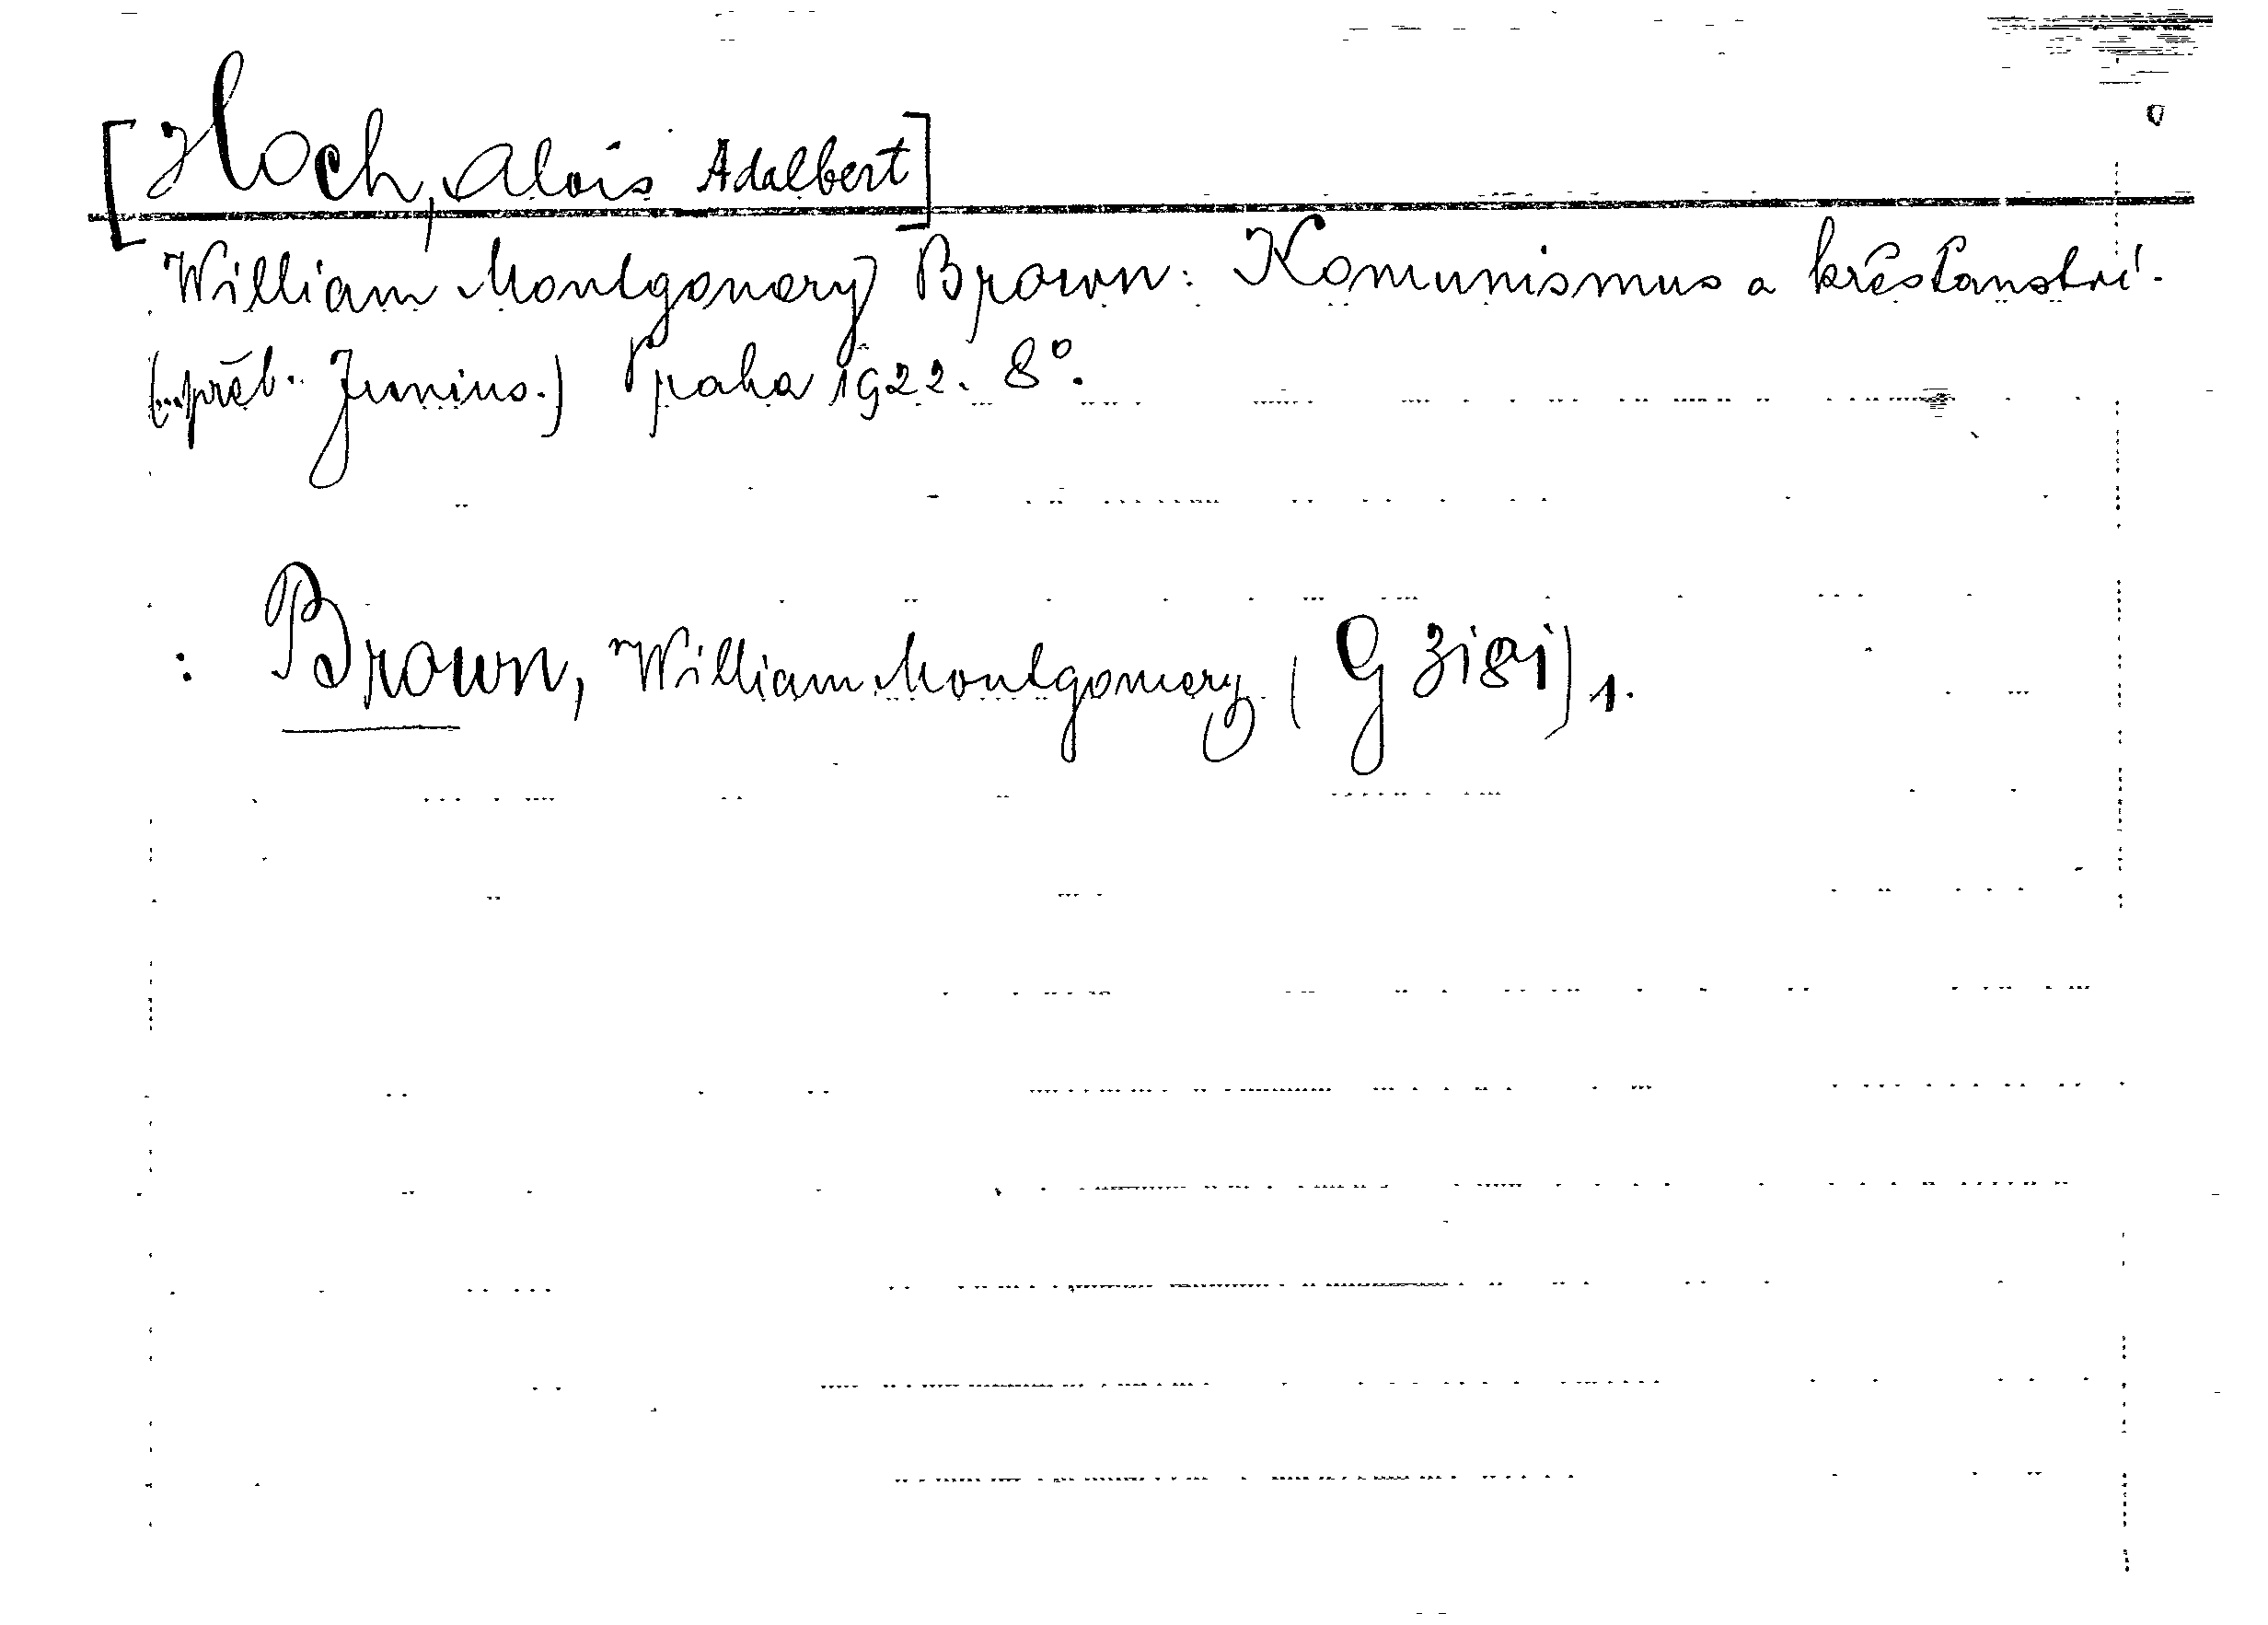 [Hoch, Alois Adalbert]
William Montgomery Brown: Komunismus a křesťanství.
(přeb. Junius.) Praha 1922. 8°.
: Brown, William Montgomery (G 3181) 1.